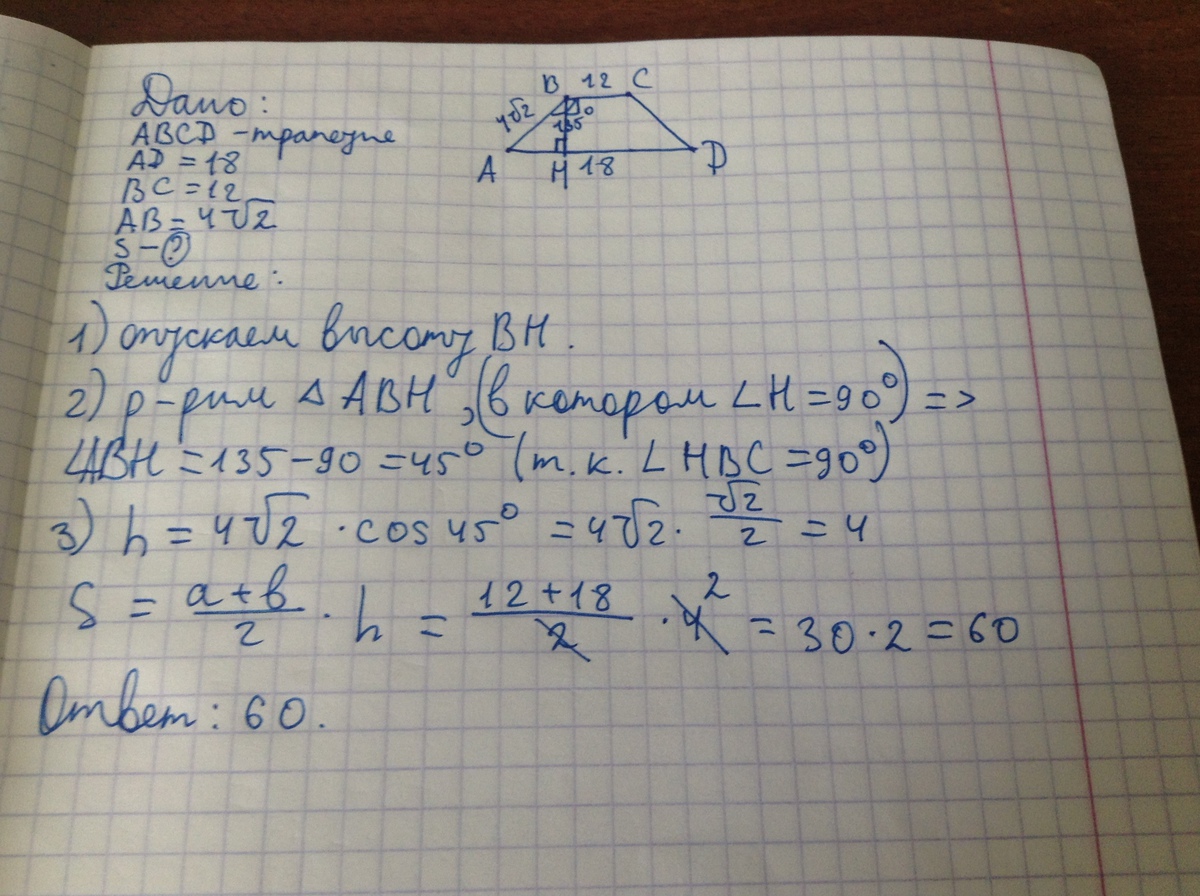 Дано:
ABCD - трапеция
AD = 18
BC = 12
AB = 4√2
S - ?
B 12 C
4√2
135°
A H 18 D
Решение:
1) опускаем высоту BH.
2) р-рим △ ABH, (в котором ∠H = 90°) =>
∠ABH = 135 - 90 = 45° (т.к. ∠HBC = 90°)
3) h = 4√2 · cos 45° = 4√2 · √2/2 = 4
S = a+b/2 · h = 12+18/2 · 4 2 = 30 · 2 = 60
Ответ: 60.